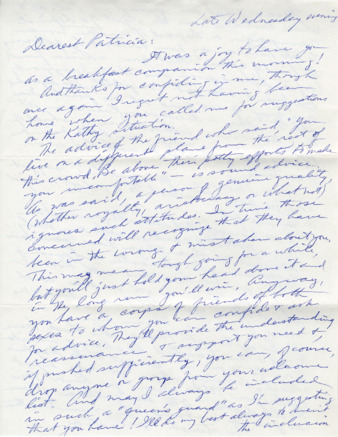 Late Wednesday evening
Dearest Patricia:
It was a joy to have you
as a breakfast companion this morning!
And thanks for confiding in me, though
once again I regret not having been
home when you called me for suggestions
on the Kathy situation.
The advice of the friend who said, "You
live on a different plane from the rest of
this crowd. Be above their petty efforts to make
you uncomfortable" – is sound advice.
As was said, a person of genuine quality,
(whether royalty, aristocracy or what not)
ignores such attitudes. In time those
concerned will recognize that they have
been in the wrong & mistaken about you.
This may mean tough going for a while,
but you'll just hold your head above it and
in the long run you'll win. Anyway,
you have a corps of friends of both
sexes to whom you can confide & ask
for advice. They'll provide the understanding
reassurance & support you need &
if pushed sufficiently, you can, of course,
drop anyone or group from your welcome
list. And may I always be included
in such a "queen's guard" as I'm suggesting
that you have! I'll do my best always to merit
the inclusion